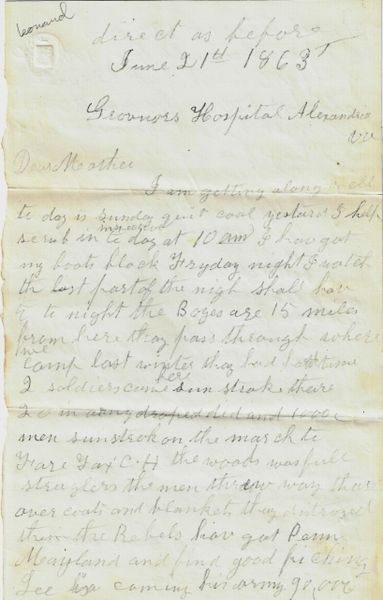 leonard
direct as before
June 21st 1863
Geovnors Hospital Alexandria
Va
Dear Mother
I am getting along well
to day is sunday quit cool yestard I help
scrub in to day at 10 am I hav got
my boots black Fryday night I watch
th last part of the nigh shall hav
to night the Boyes are 15 miles
from here thay pass through where
we
camp last winter thay had time
2 soldiers come here sun strok thare
20 in army droped ded and 1000
men sunstrok on the march to
Fare Fax C.H the woods was full
straglers the men threw way thar
over coats and blankets thay distroyed
them the Rebels hav got Penn
Maryland and find good
Lee is coming his army 90,000